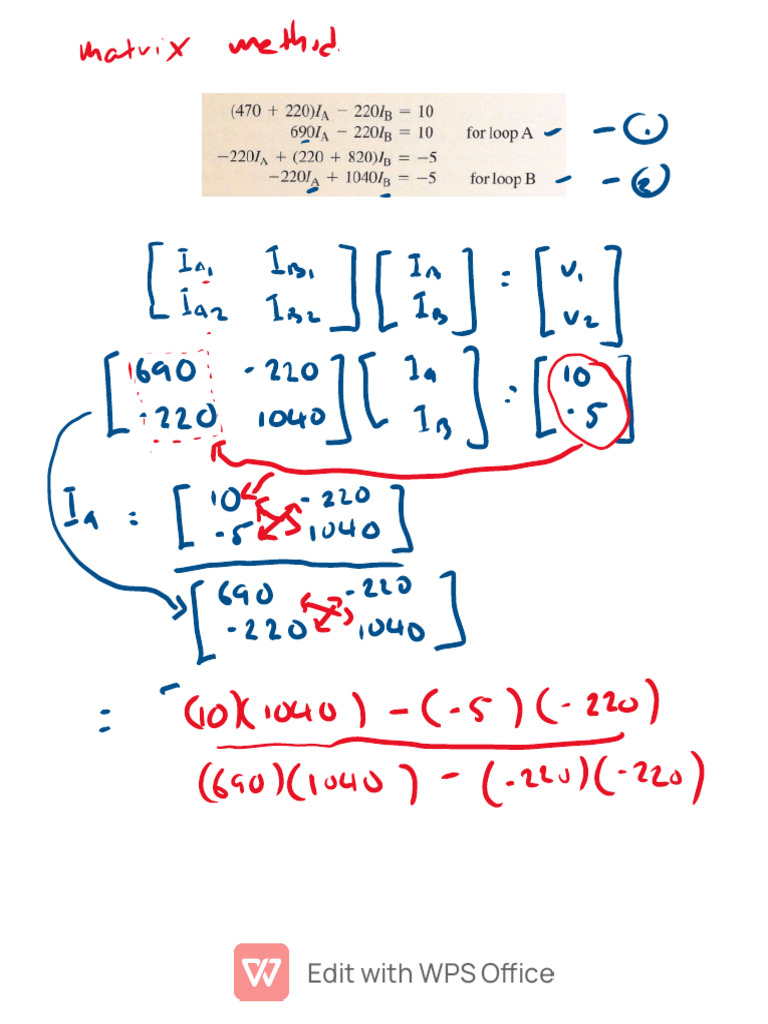 matrix method.
(470 + 220)I_A − 220I_B = 10
690I_A − 220I_B = 10 for loop A - - ①
−220I_A + (220 + 820)I_B = −5
−220I_A + 1040I_B = −5 for loop B - - ②
[I_a1 I_B1] [I_A] : [V1]
[I_a2 I_B2] [I_B] [V2]
[690 -220] [I_a] : [10]
[-220 1040] [I_B] [-5]
I_a : [10 -220]
[-5 1040]
[690 -220]
[-220 1040]
= (10)(1040) - (-5)(-220)
(690)(1040) - (-220)(-220)
Edit with WPS Office